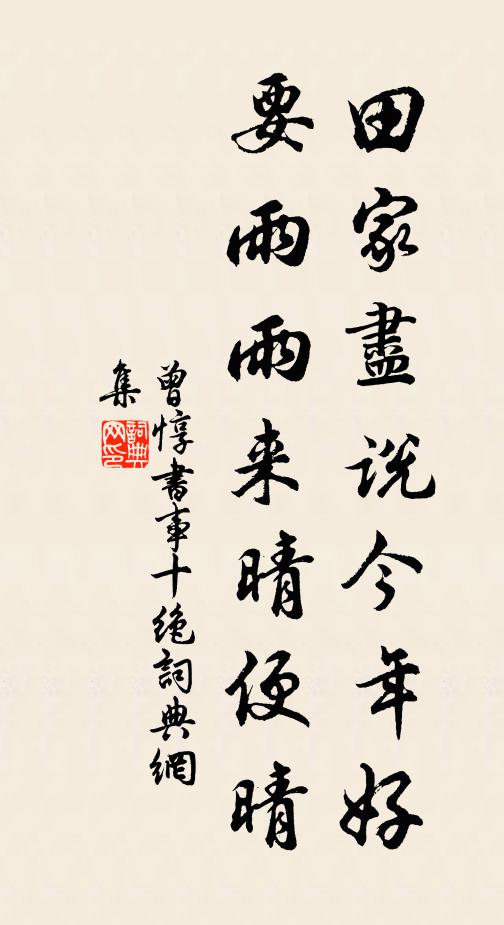 田家盡説今年好
要雨雨来晴便晴
曾惇書事十絶詞典網
集
詞典
网印